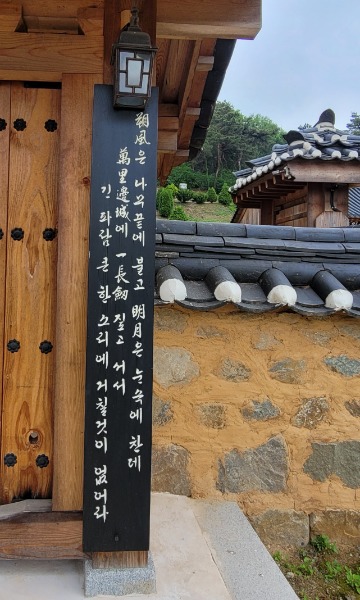 朔風은 나무끝에 불고 明月은 눈속에 찬데
萬里邊城에 一長劒 짚고 서서
긴 파람 큰 한 소리에 거칠것이 없어라